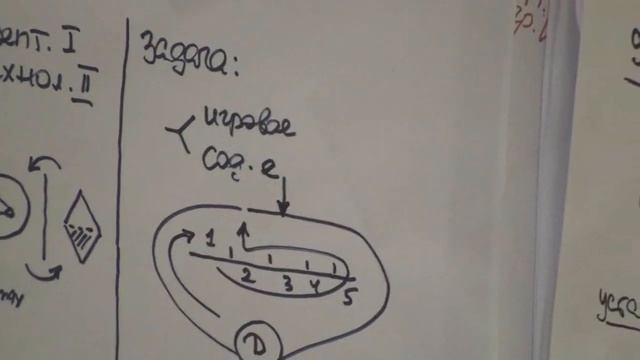 епт. I
хнол. II
Задача:
игровое
сод.-е
1
2 3 4 5
D
уста